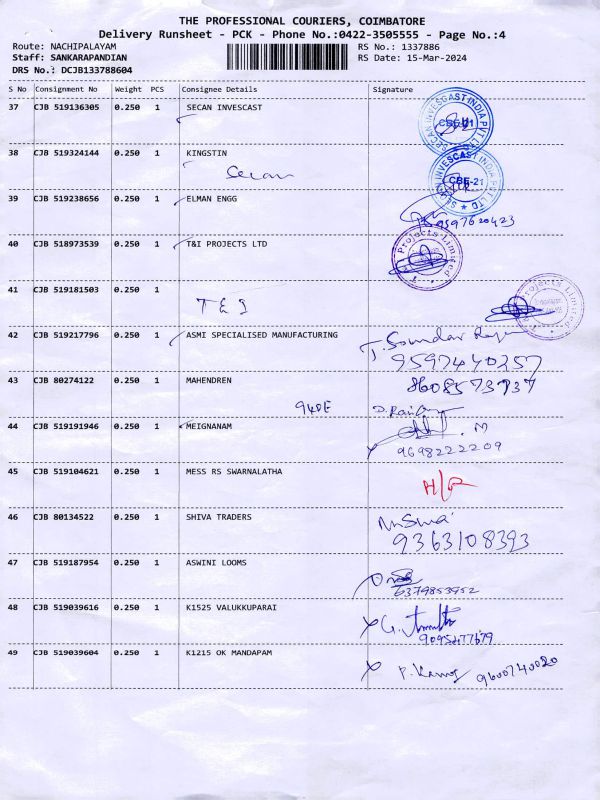 THE PROFESSIONAL COURIERS, COIMBATORE
Delivery Runsheet - PCK - Phone No.:0422-3505555 - Page No.:4
Route: NACHIPALAYAM
RS No.: 1337886
Staff: SANKARAPANDIAN
RS Date: 15-Mar-2024
DRS No.: DCJB133788604
S No Consignment No Weight PCS Consignee Details Signature
37 CJB 519136305 0.250 1 SECAN INVESCAST
SECAN INVESCAST INDIA PVT LTD
38 CJB 519324144 0.250 1 KINGSTIN
Secan
SECAN INVESCAST INDIA PVT LTD
CBE-21
39 CJB 519238656 0.250 1 ELMAN ENGG
9597620423
40 CJB 518973539 0.250 1 T&I PROJECTS LTD
Projects Limited
41 CJB 519181503 0.250 1
T & I
Projects Limited
42 CJB 519217796 0.250 1 ASMI SPECIALISED MANUFACTURING
T. Soundar Rajan
9597440357
43 CJB 80274122 0.250 1 MAHENDREN
8608573737
44 CJB 519191946 0.250 1 MEIGNANAM
. M
9698222209
45 CJB 519104621 0.250 1 MESS RS SWARNALATHA
46 CJB 80134522 0.250 1 SHIVA TRADERS
9363108393
47 CJB 519187954 0.250 1 ASWINI LOOMS
6379853952
48 CJB 519039616 0.250 1 K1525 VALUKKUPARAI
49 CJB 519039604 0.250 1 K1215 OK MANDAPAM
P. Kumar 9600740020